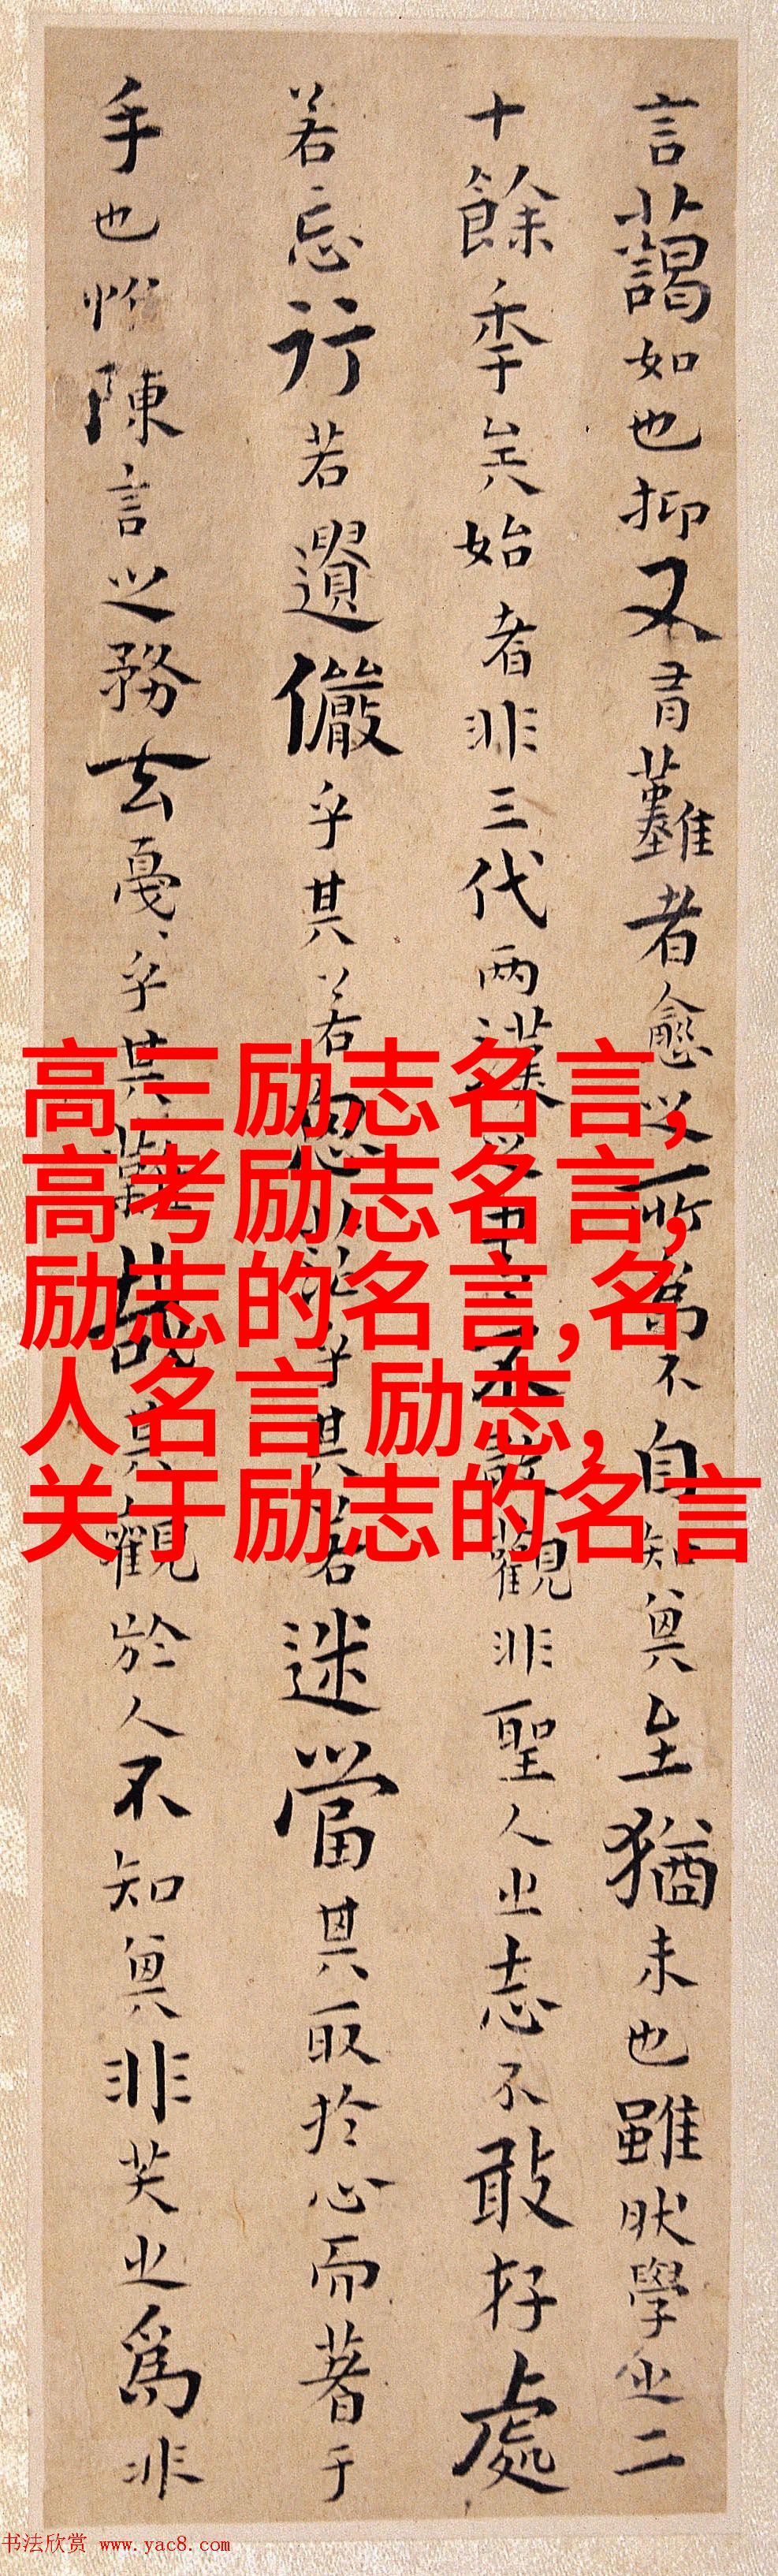 言藹如也抑又有難者愈之所為不自知其至猶未也雖然學之二
十餘年矣始者非三代两漢之書不敢觀非聖人之志不敢存處
若忘行若遺儼乎其若思茫乎其若迷當其取於心而著于
手也惟陳言之務去戛戛乎其難哉其觀於人不知其非笑之為非
高三励志名言,
高考励志名言,
励志的名言,名
人名言 励志,
关于励志的名言
书法欣赏 www.yac8.com